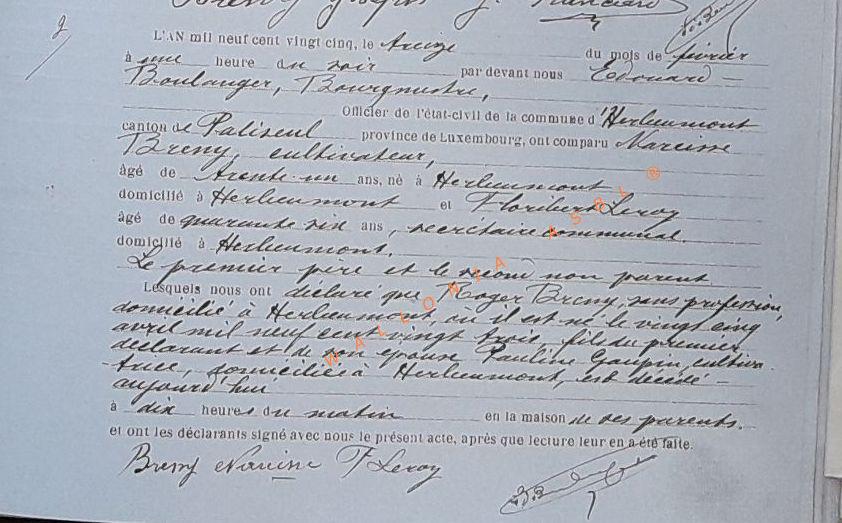 2
L'AN mil neuf cent vingt cinq, le treize du mois de février
à une heure du soir par devant nous Edouard
Boulanger, Bourgmestre,
Officier de l'état-civil de la commune d'Herbeumont
canton de Paliseul province de Luxembourg, ont comparu Narcisse
Breny, cultivateur,
âgé de trente-un ans, né à Herbeumont
domicilié à Herbeumont et Floribert Leroy
âgé de quarante six ans, secrétaire communal.
domicilié à Herbeumont.
Le premier père et le second non parent
Lesquels nous ont déclaré que Roger Breny, sans profession,
domicilié à Herbeumont où il est né le vingt cinq
avril mil neuf cent vingt trois, fils du premier
déclarant et de son épouse Pauline cultiva-
trice, domiciliés à Herbeumont, est décédé
aujourd'hui
à dix heures du matin en la maison de ses parents.
et ont les déclarants signé avec nous le présent acte, après que lecture leur en a été faite.
Breny Narcisse F Leroy
WALLONIA ASBL ®